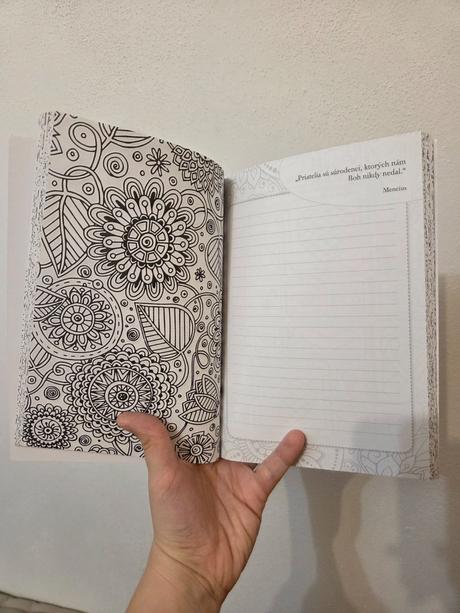 „Priatelia sú súrodenci, ktorých nám
Boh nikdy nedal.“
Mencius